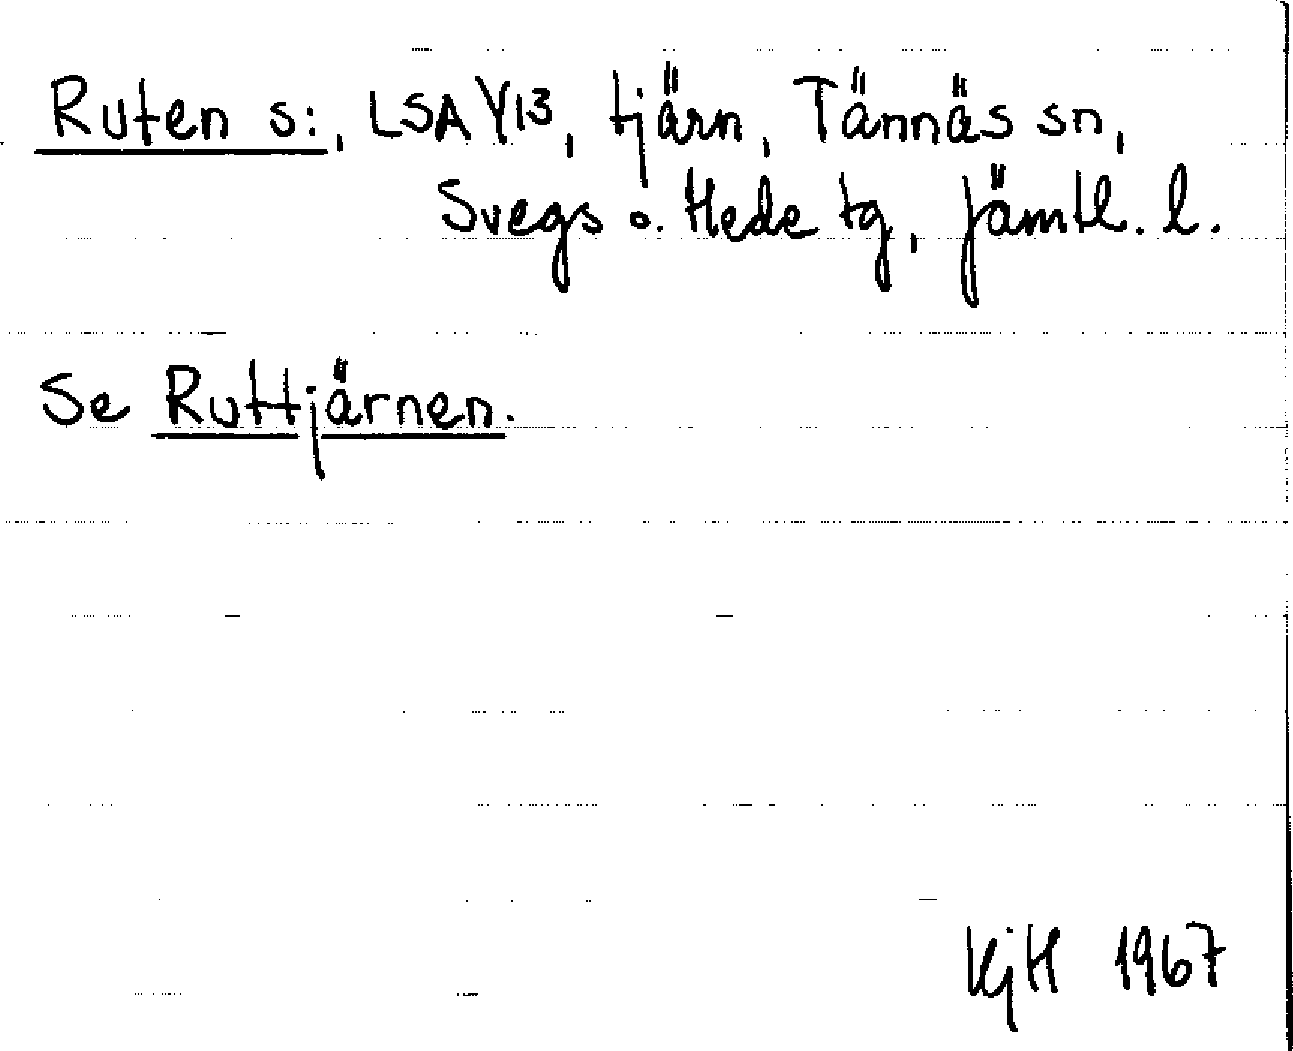 Ruten s:, LSA Y13, tjärn, Tännäs sn,
Svegs o. Hede tg, Jämtl. l.
Se Ruttjärnen.
KjH 1967